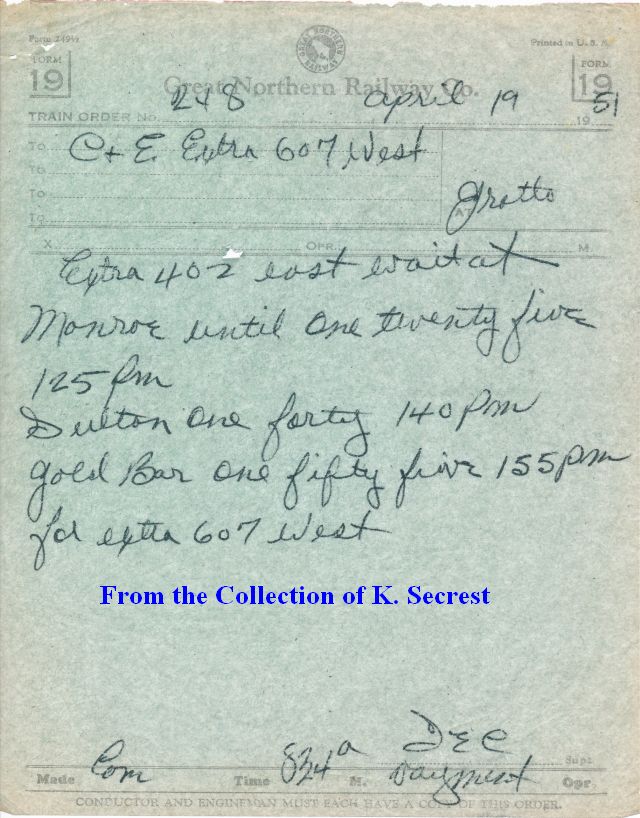 Form 249½ Printed in U. S. A.
GREAT NORTHERN RAILWAY
FORM 19 FORM 19
Great Northern Railway Co.
TRAIN ORDER No. 248 April 19 19 51
To C + E Extra 607 West
To
To
To At Grotto
X OPR. M.
Extra 402 east wait at
Monroe until One twenty five
125 pm
Sulton One forty 140 pm
Gold Bar One fifty five 155 pm
for extra 607 West
From the Collection of K. Secrest
D E C Supt
Made Com Time 834 a M. Opr
CONDUCTOR AND ENGINEMAN MUST EACH HAVE A COPY OF THIS ORDER.